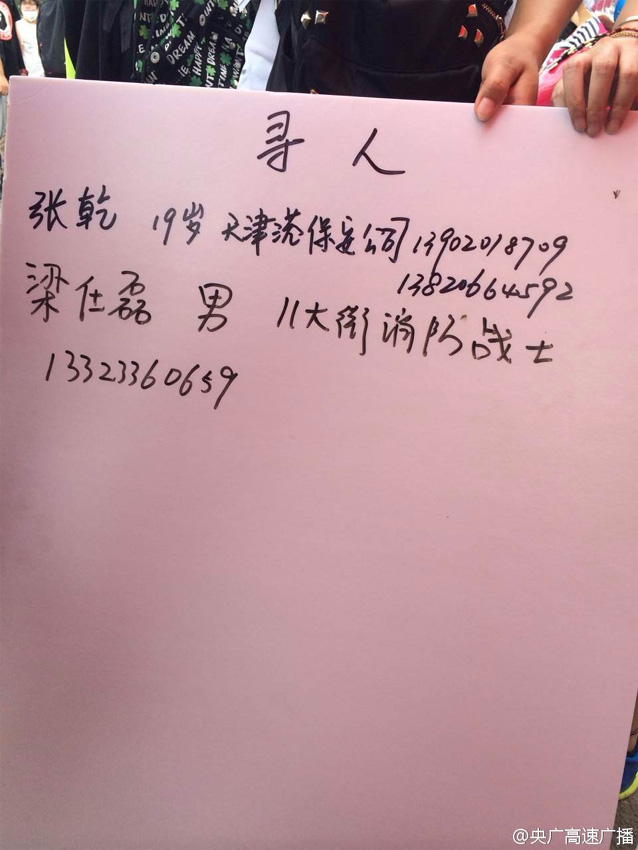 寻人
张乾 19岁 天津港保安公司 13902018709
13820664592
梁仕磊 男 11大街消防战士
13323360659
@央广高速广播